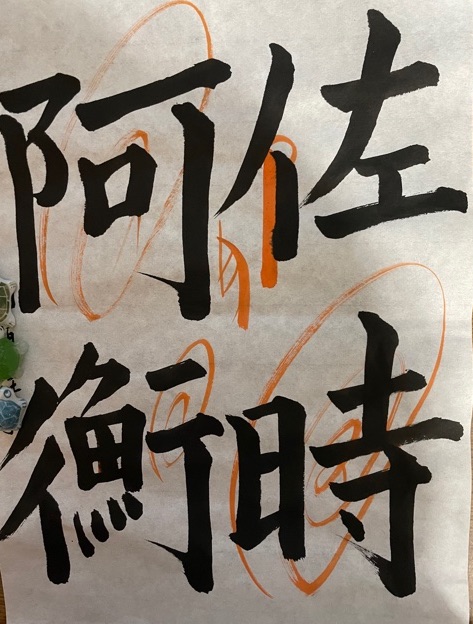 佐時
阿衡